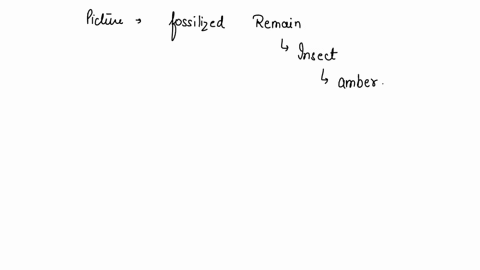 Picture → fossilized Remain
↳ Insect
↳ amber.